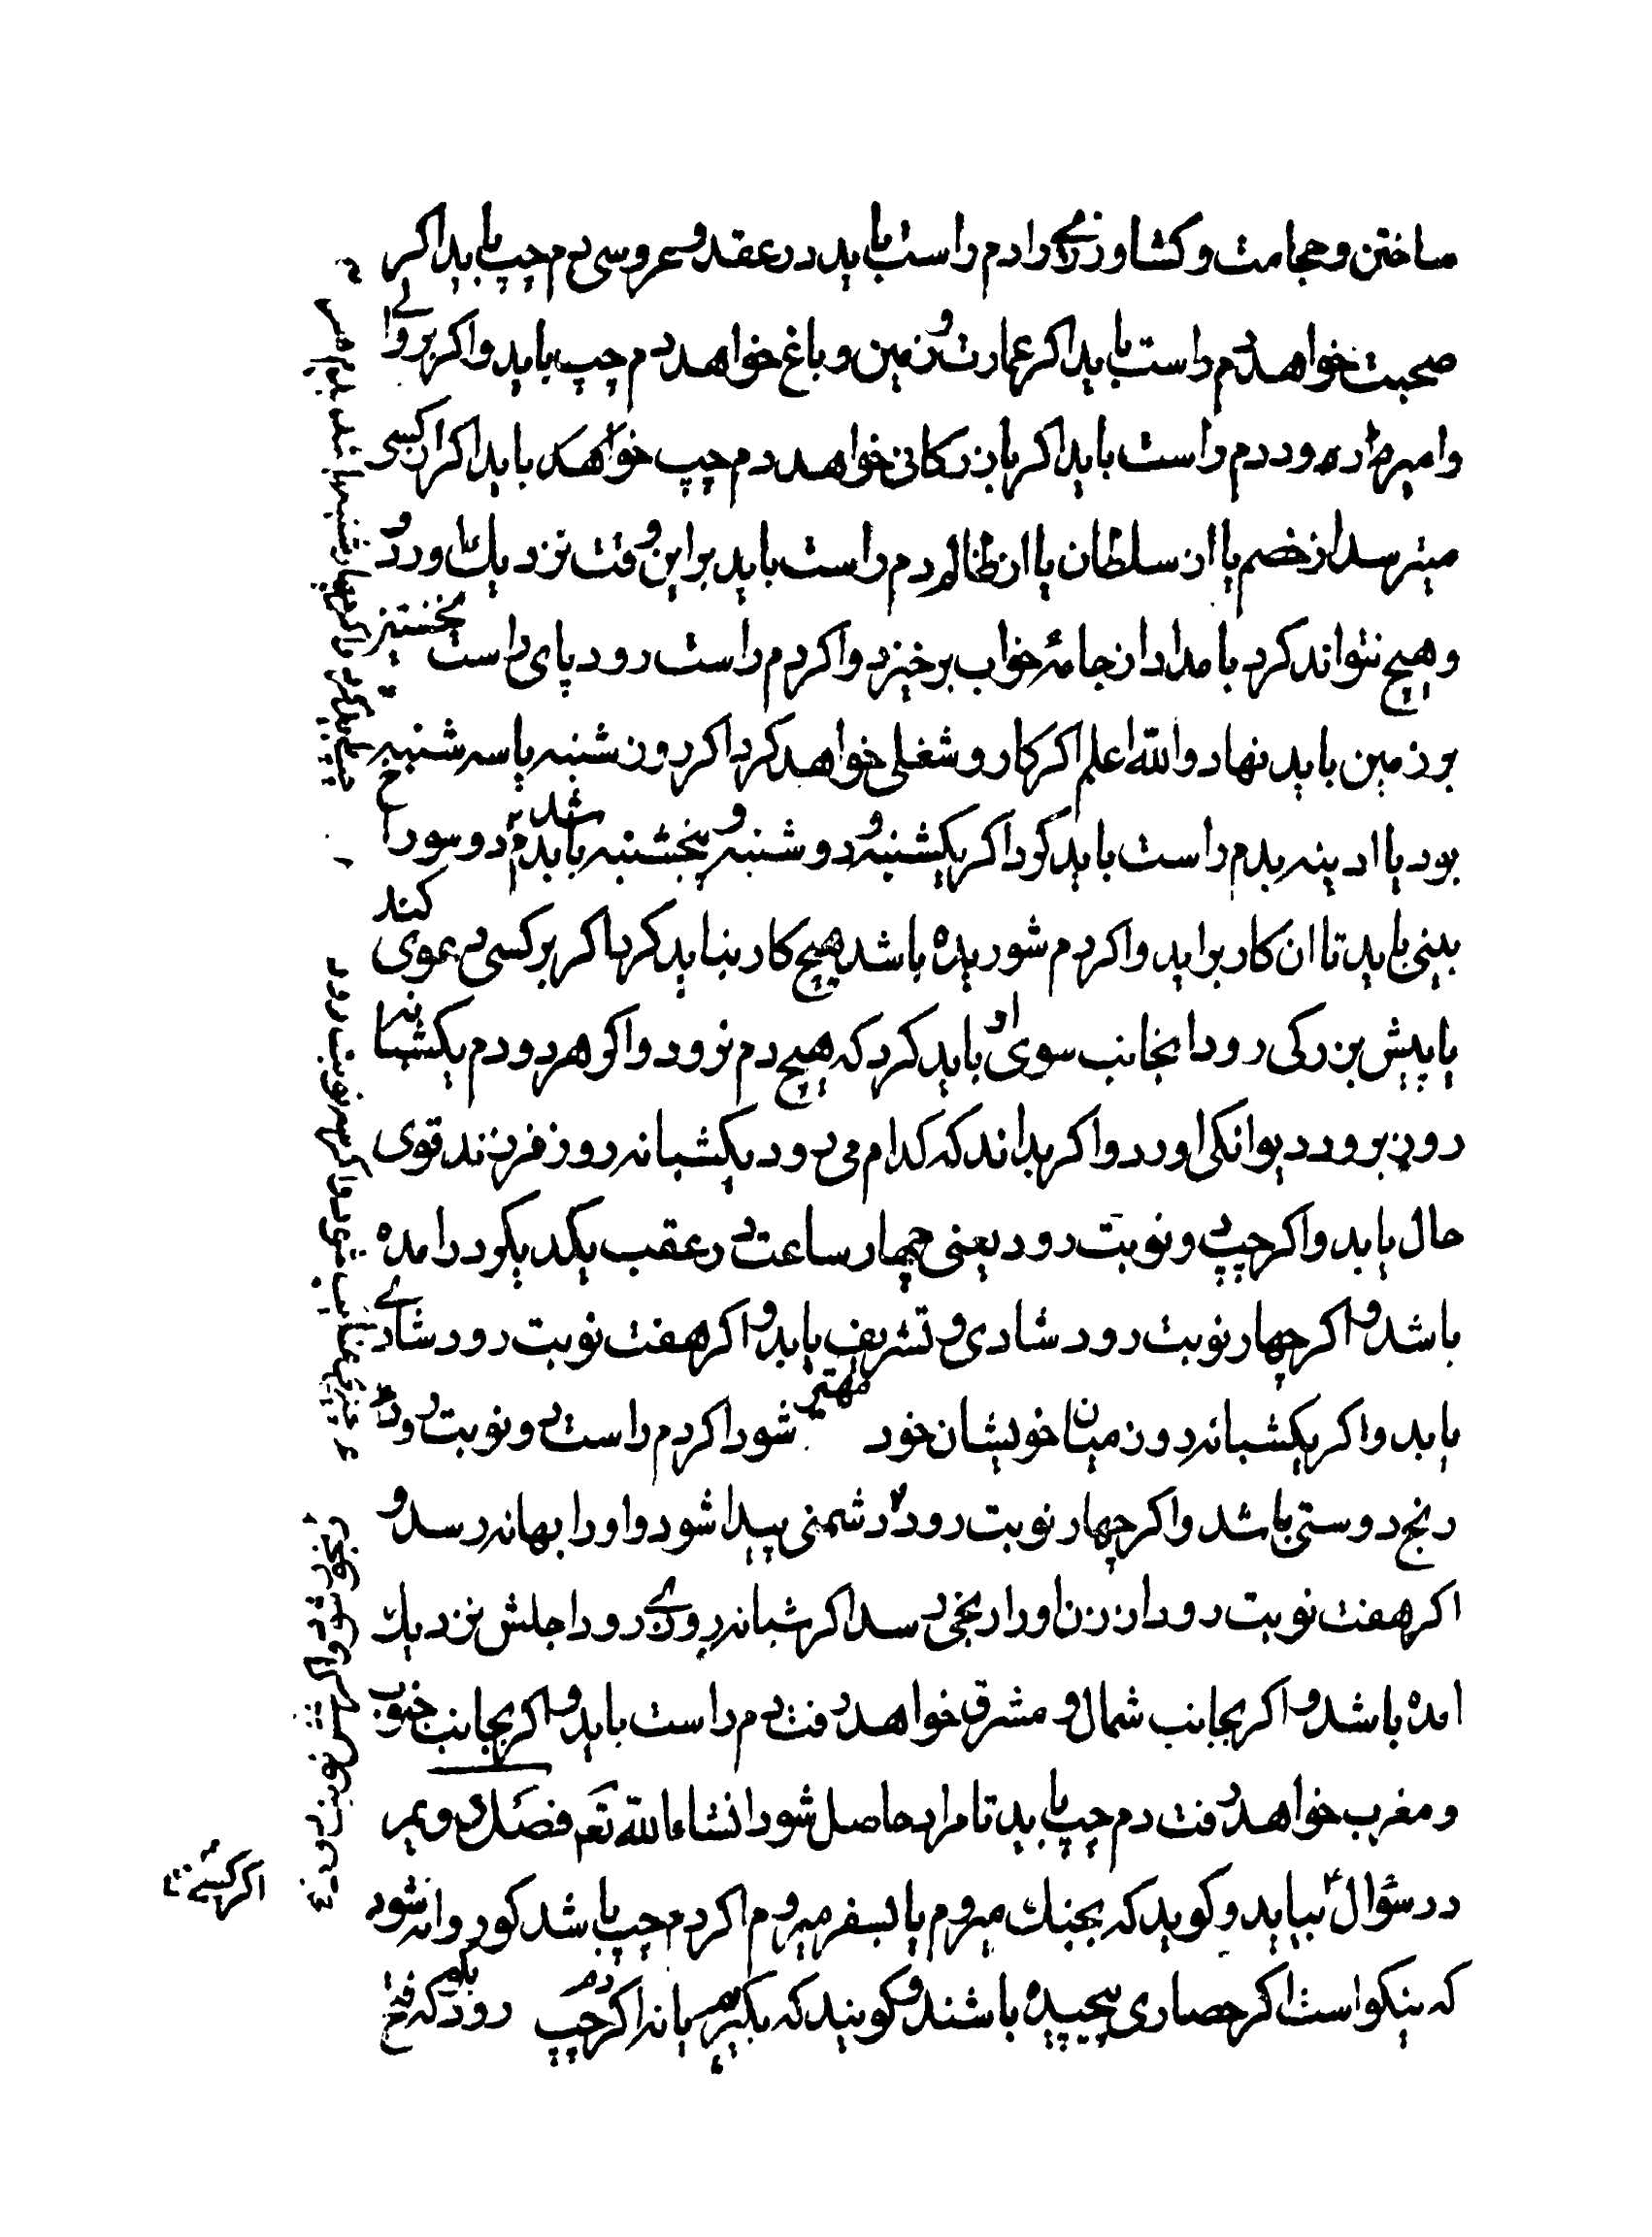 ساختن و حجامت و کشاورزی را دم راست باید در عقد و عروسی دم چپ باید اکر
صحبت خواهد دم راست باید اکر عمارت و زمین و باغ خواهد دم چپ باید و اکر بروالے
وامیر رود دم راست باید اکر بازرکانی خواهد دم چپ خواهد باید اکر از کسی
میترسد از خصم یا از سلطان یا از ظالم دم راست باید بر این وقت نزدیك اورود
و هیچ نتواند کرد بامداد از جامۀ خواب برخیزد و اکر دم راست رود پای راست نخستین
بر زمین باید نهاد والله اعلم اکر کار و شغلی خواهد کرد اکر روز شنبه یا سه شنبه
بود یا ادینه بدم راست باید کرد اکر یکشنبه و دوشنبه و پنجشنبه باید دم دو سوراخ
بینی باید تا ان کار براید و اکر دم شوریده باشد هیچ کار نباید کرد اکر بر کسی دعوی کند
یا پیش بزرکی رود انجانب سوی او باید کرد که هیچ دم نرود و اکر هر دو دم یکشبانه
روز برود دیوانکی اورد و اکر بداند که کدام می رود یکشبانه روز فرزند قوی
حال یابد و اکر چپ دو نوبت رود یعنی چهار ساعت در عقب یکدیکر درامده
باشد و اکر چهار نوبت رود شادی و تشریف یابد و اکر هفت نوبت رود شادے
یابد و اکر یکشبانه روز میان خویشان خود مهتر شود اکر دم راست دو نوبت رود
رنج دوستی باشد و اکر چهار نوبت رود دشمنی پیدا شود و او را بهانه رسد و
اکر هفت نوبت رود از زن او را رنجی رسد اکر شبانه روزے رود اجلش نزدیك
امده باشد و اکر بجانب شمال و مشرق خواهد رفت دم راست باید و اکر بجانب جنوب
و مغرب خواهد رفت دم چپ باید تا مراد حاصل شود انشاءالله تعم فصل دویم
در سؤال بیاید و کوید که بجنك میروم یا بسفر میروم اکر دم چپ باشد کو روانه شود
که نیکو است اکر حصاری پیچیده باشند و کویند که بکیریم یا نه اکر چپ دم رود بکو که فتح
اکر کسے